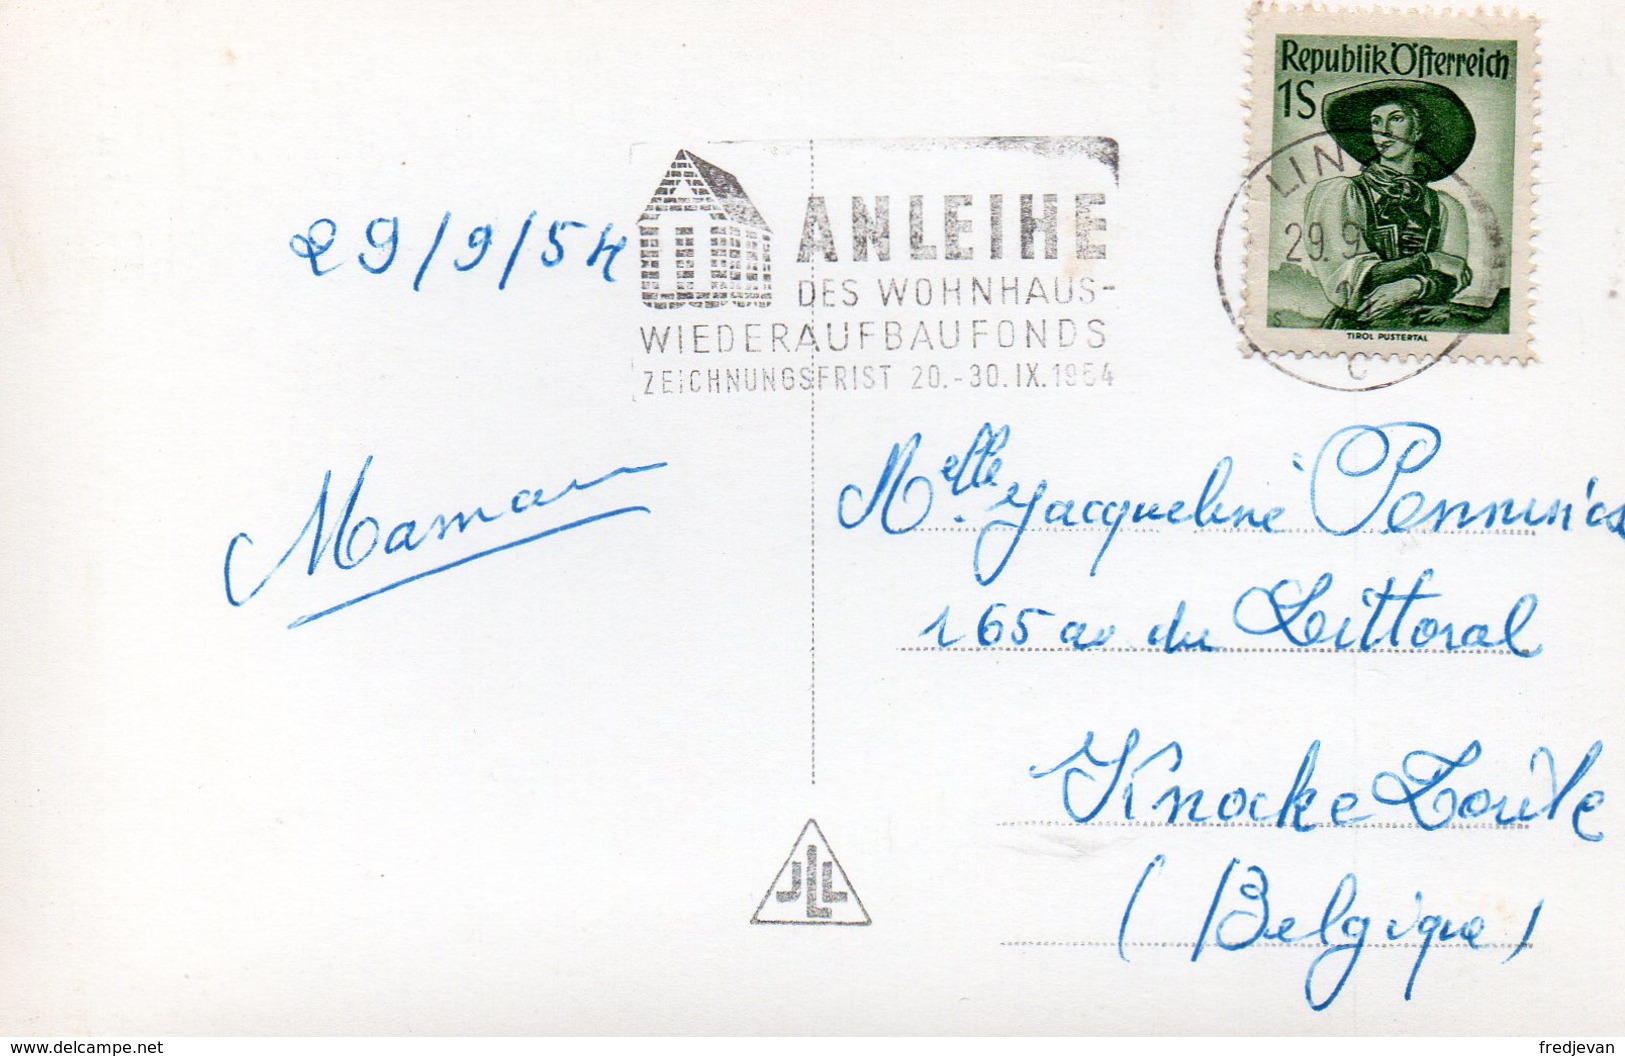 Republik Österreich
1S
LINZ
29.9
TIROL PUSTERTAL
ANLEIHE
DES WOHNHAUS-
WIEDERAUFBAUFONDS
ZEICHNUNGSFRIST 20.-30.IX.1954
29/9/54
Maman
Melle. Jacqueline
165 av du Littoral
Knocke Zoute
(Belgique)
www.delcampe.net
fredjevan